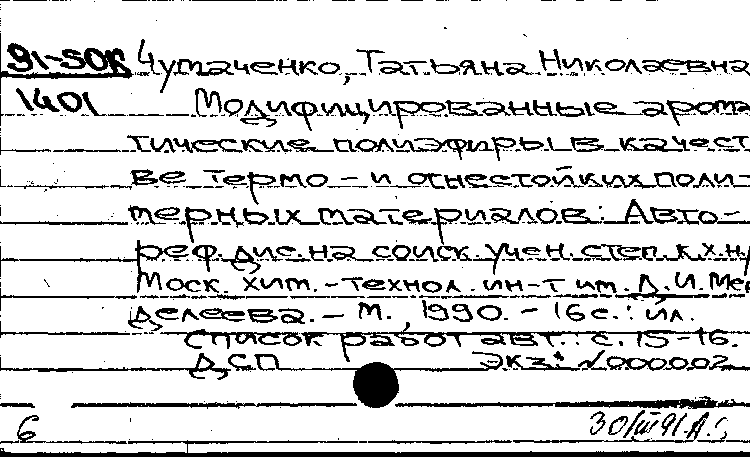 91-SOK Чумаченко, Татьяна Николаевна
1401 Модифицированные арома
тические полиэфиры в качест
ве термо – и огнестойких поли-
мерных материалов: Авто-
реф. дис. на соиск. учен. степ. к.х.н/
Моск. хим.-технол. ин-т им. Д.И. Мен
делеева. – М., 1990. – 16 с.: ил.
Список работ авт.: с. 15-16.
ДСП Экз: №000002
6 30/III 91. А.